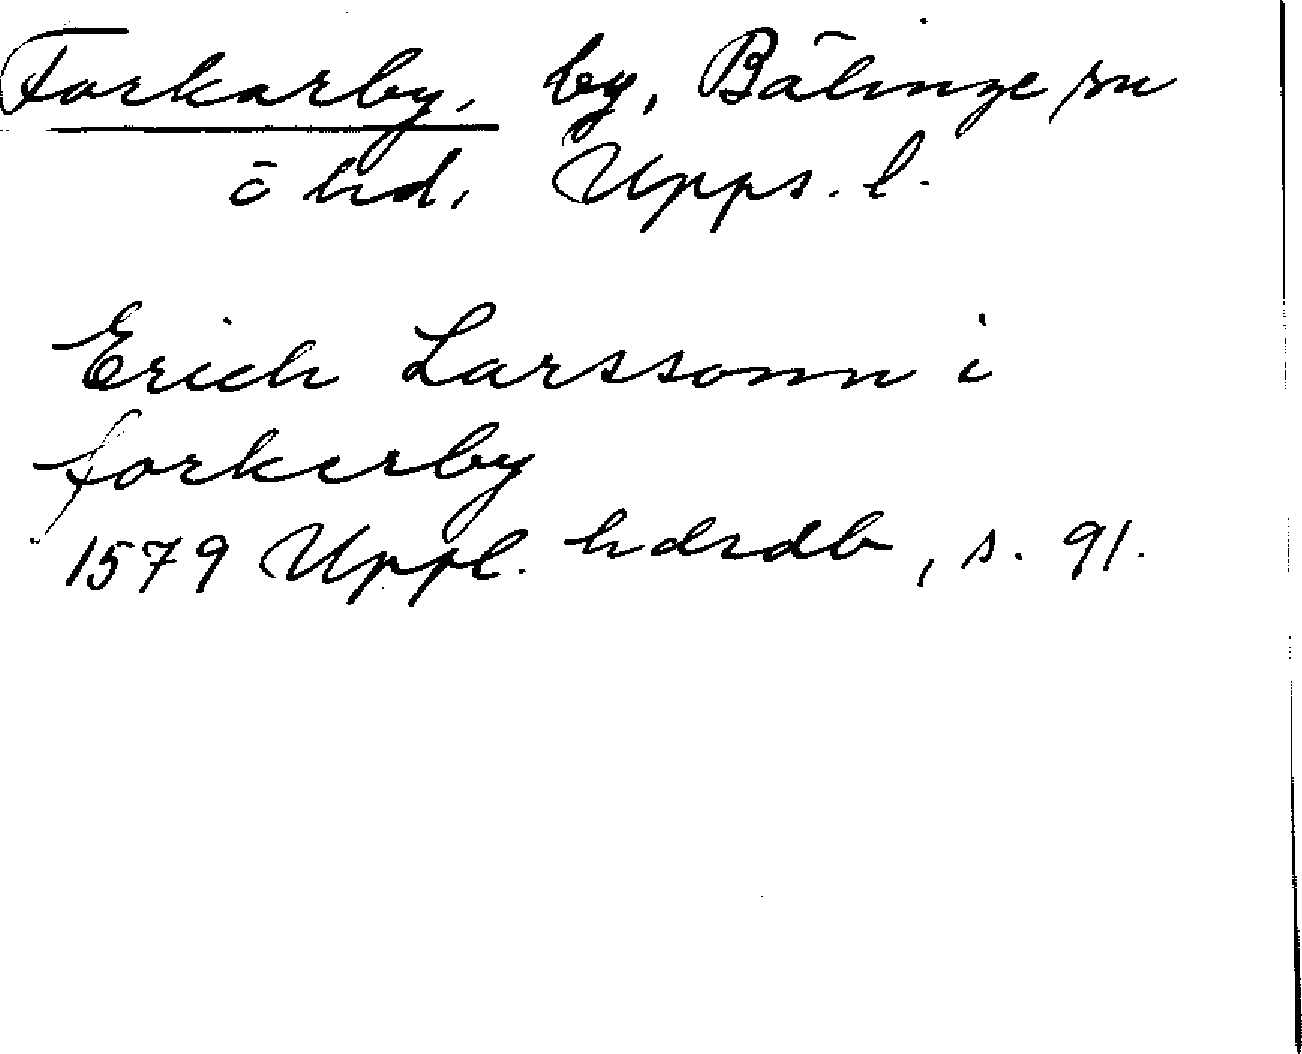 Forkarby, by, Bälinge sn
o hd, Upps. l.
Erich Larssonn i
forkerby
1579 Uppl. hdrdb, s. 91.